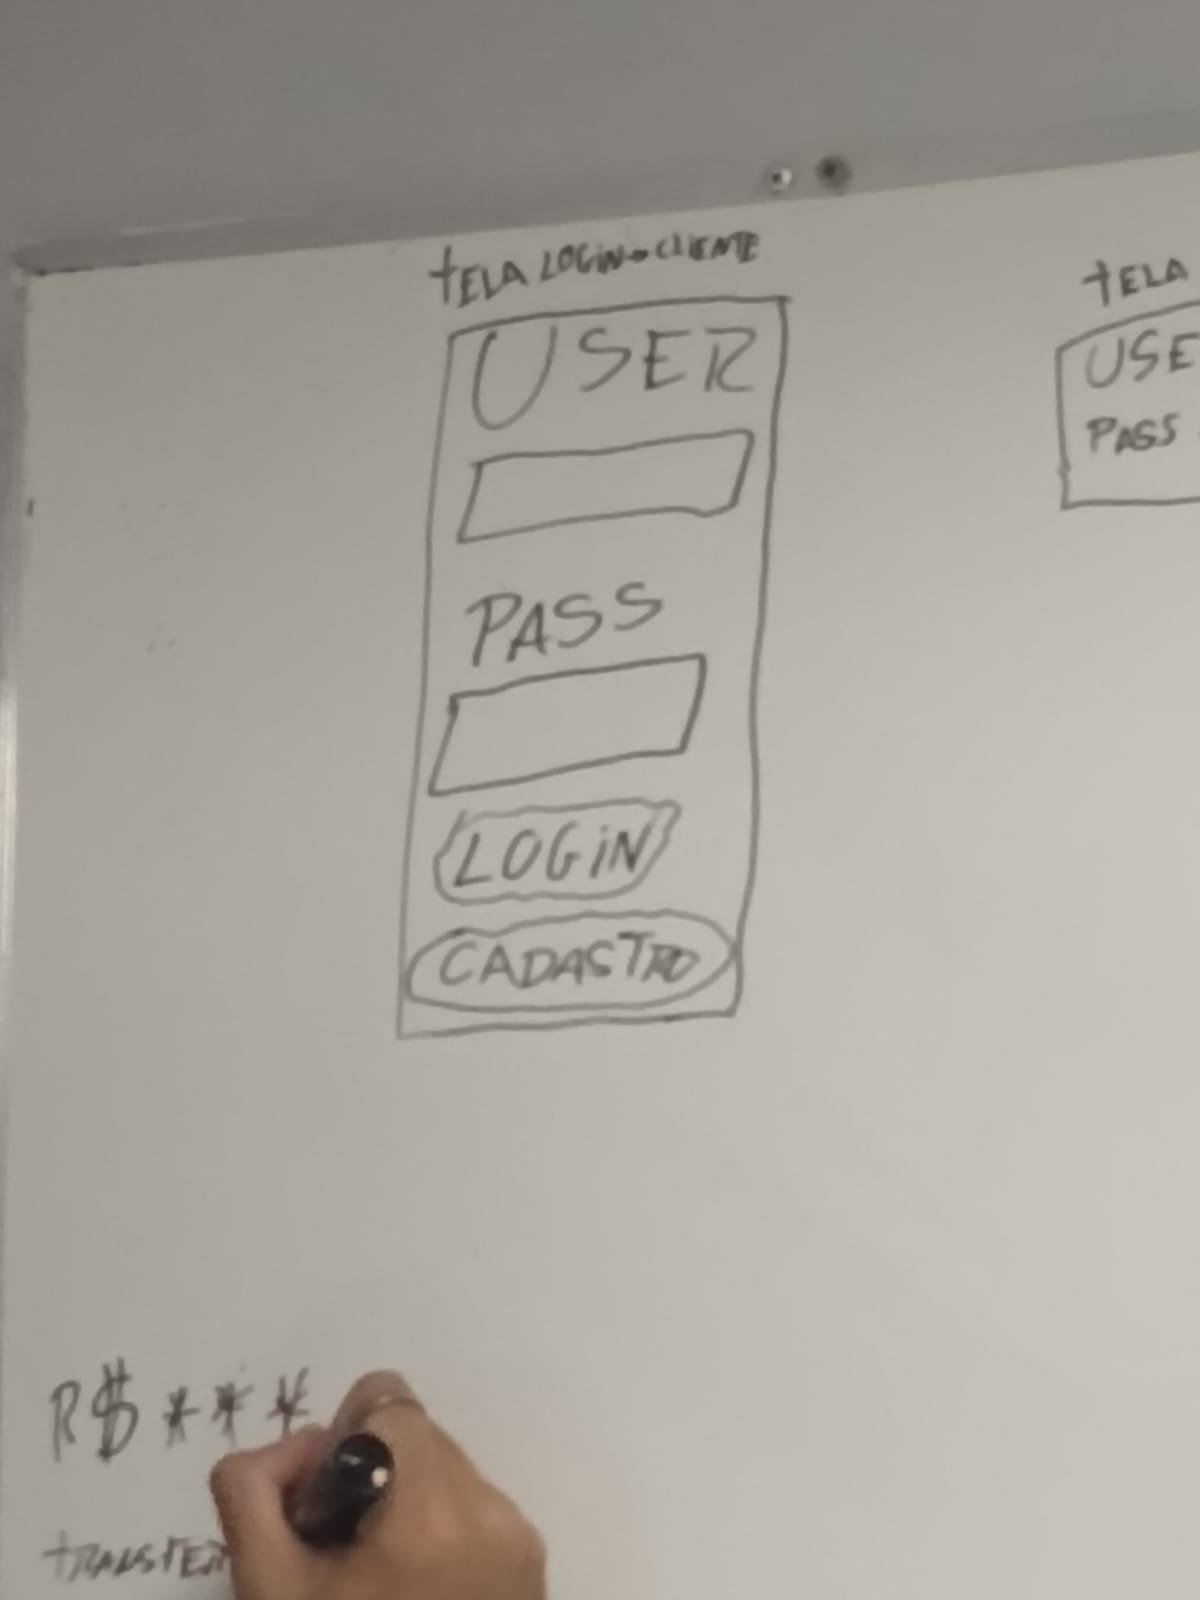 tELA LOGiN-CLIENTE
USER
PASS
LOGiN
CADASTRO
tELA
USE
PASS
R$ ***